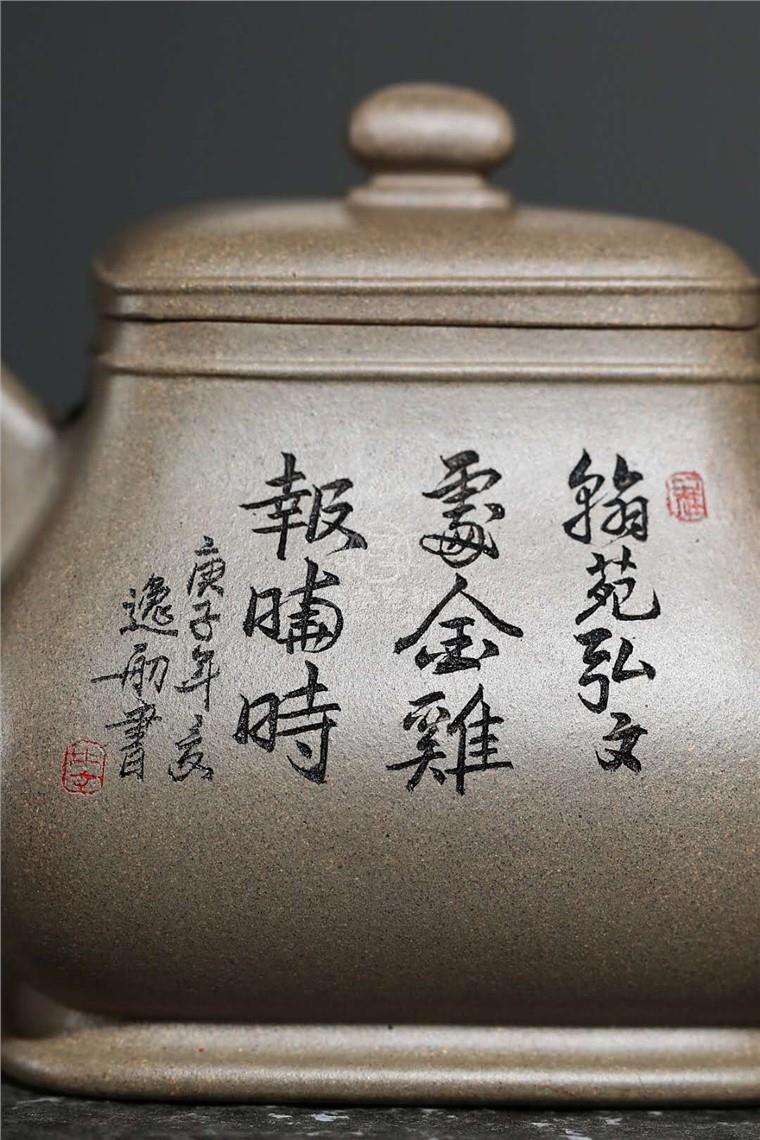 翰苑弘文
處金雞
報晡時
庚子年
逸舠書